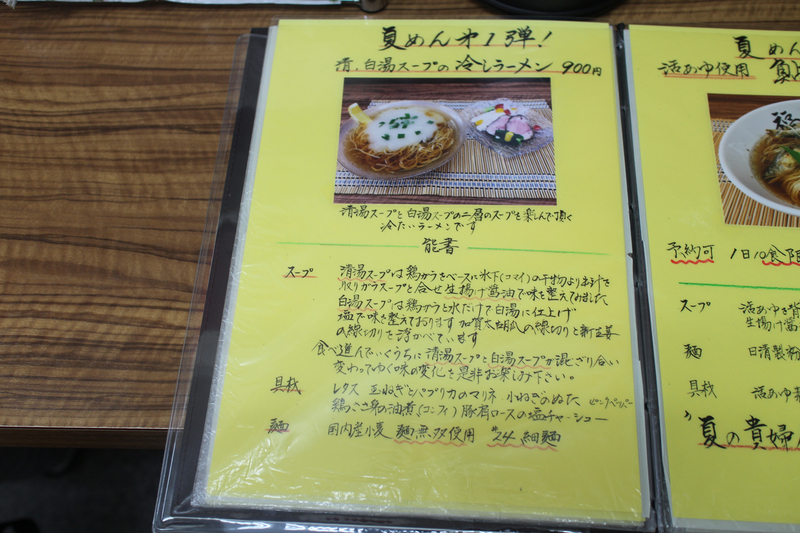 夏めん第1弾!
清、白湯スープの冷しラーメン 900円
清湯スープと白湯スープの二層のスープを楽しんで頂く
冷たいラーメンです
能書
スープ 清湯スープは鶏がらをベースに氷下(コマイ)の干物より出汁を
取りがらスープと合せ生揚げ醤油で味を整えてみました
白湯スープは鶏がらと水だけで白湯に仕上げ
塩で味を整えております 加賀太胡瓜の線切りと新生姜
の線切りを浮かべています
食べ進んでいくうちに清湯スープと白湯スープが混ざり合い
変わってゆく味の変化を是非お楽しみ下さい。
具材 レタス 玉ねぎとパプリカのマリネ 小ねぎのぬた ピンクペッパー
鶏ささ身の油煮(コンフィ) 豚肩ロースの塩チャーシュー
麺 国内産小麦 麺無双使用 #24 細麺
夏めん
活あゆ使用
予約可 1日10食限
スープ 活あゆを
生揚げ醤
麺 日清製粉
具材 活あゆ
夏の貴婦